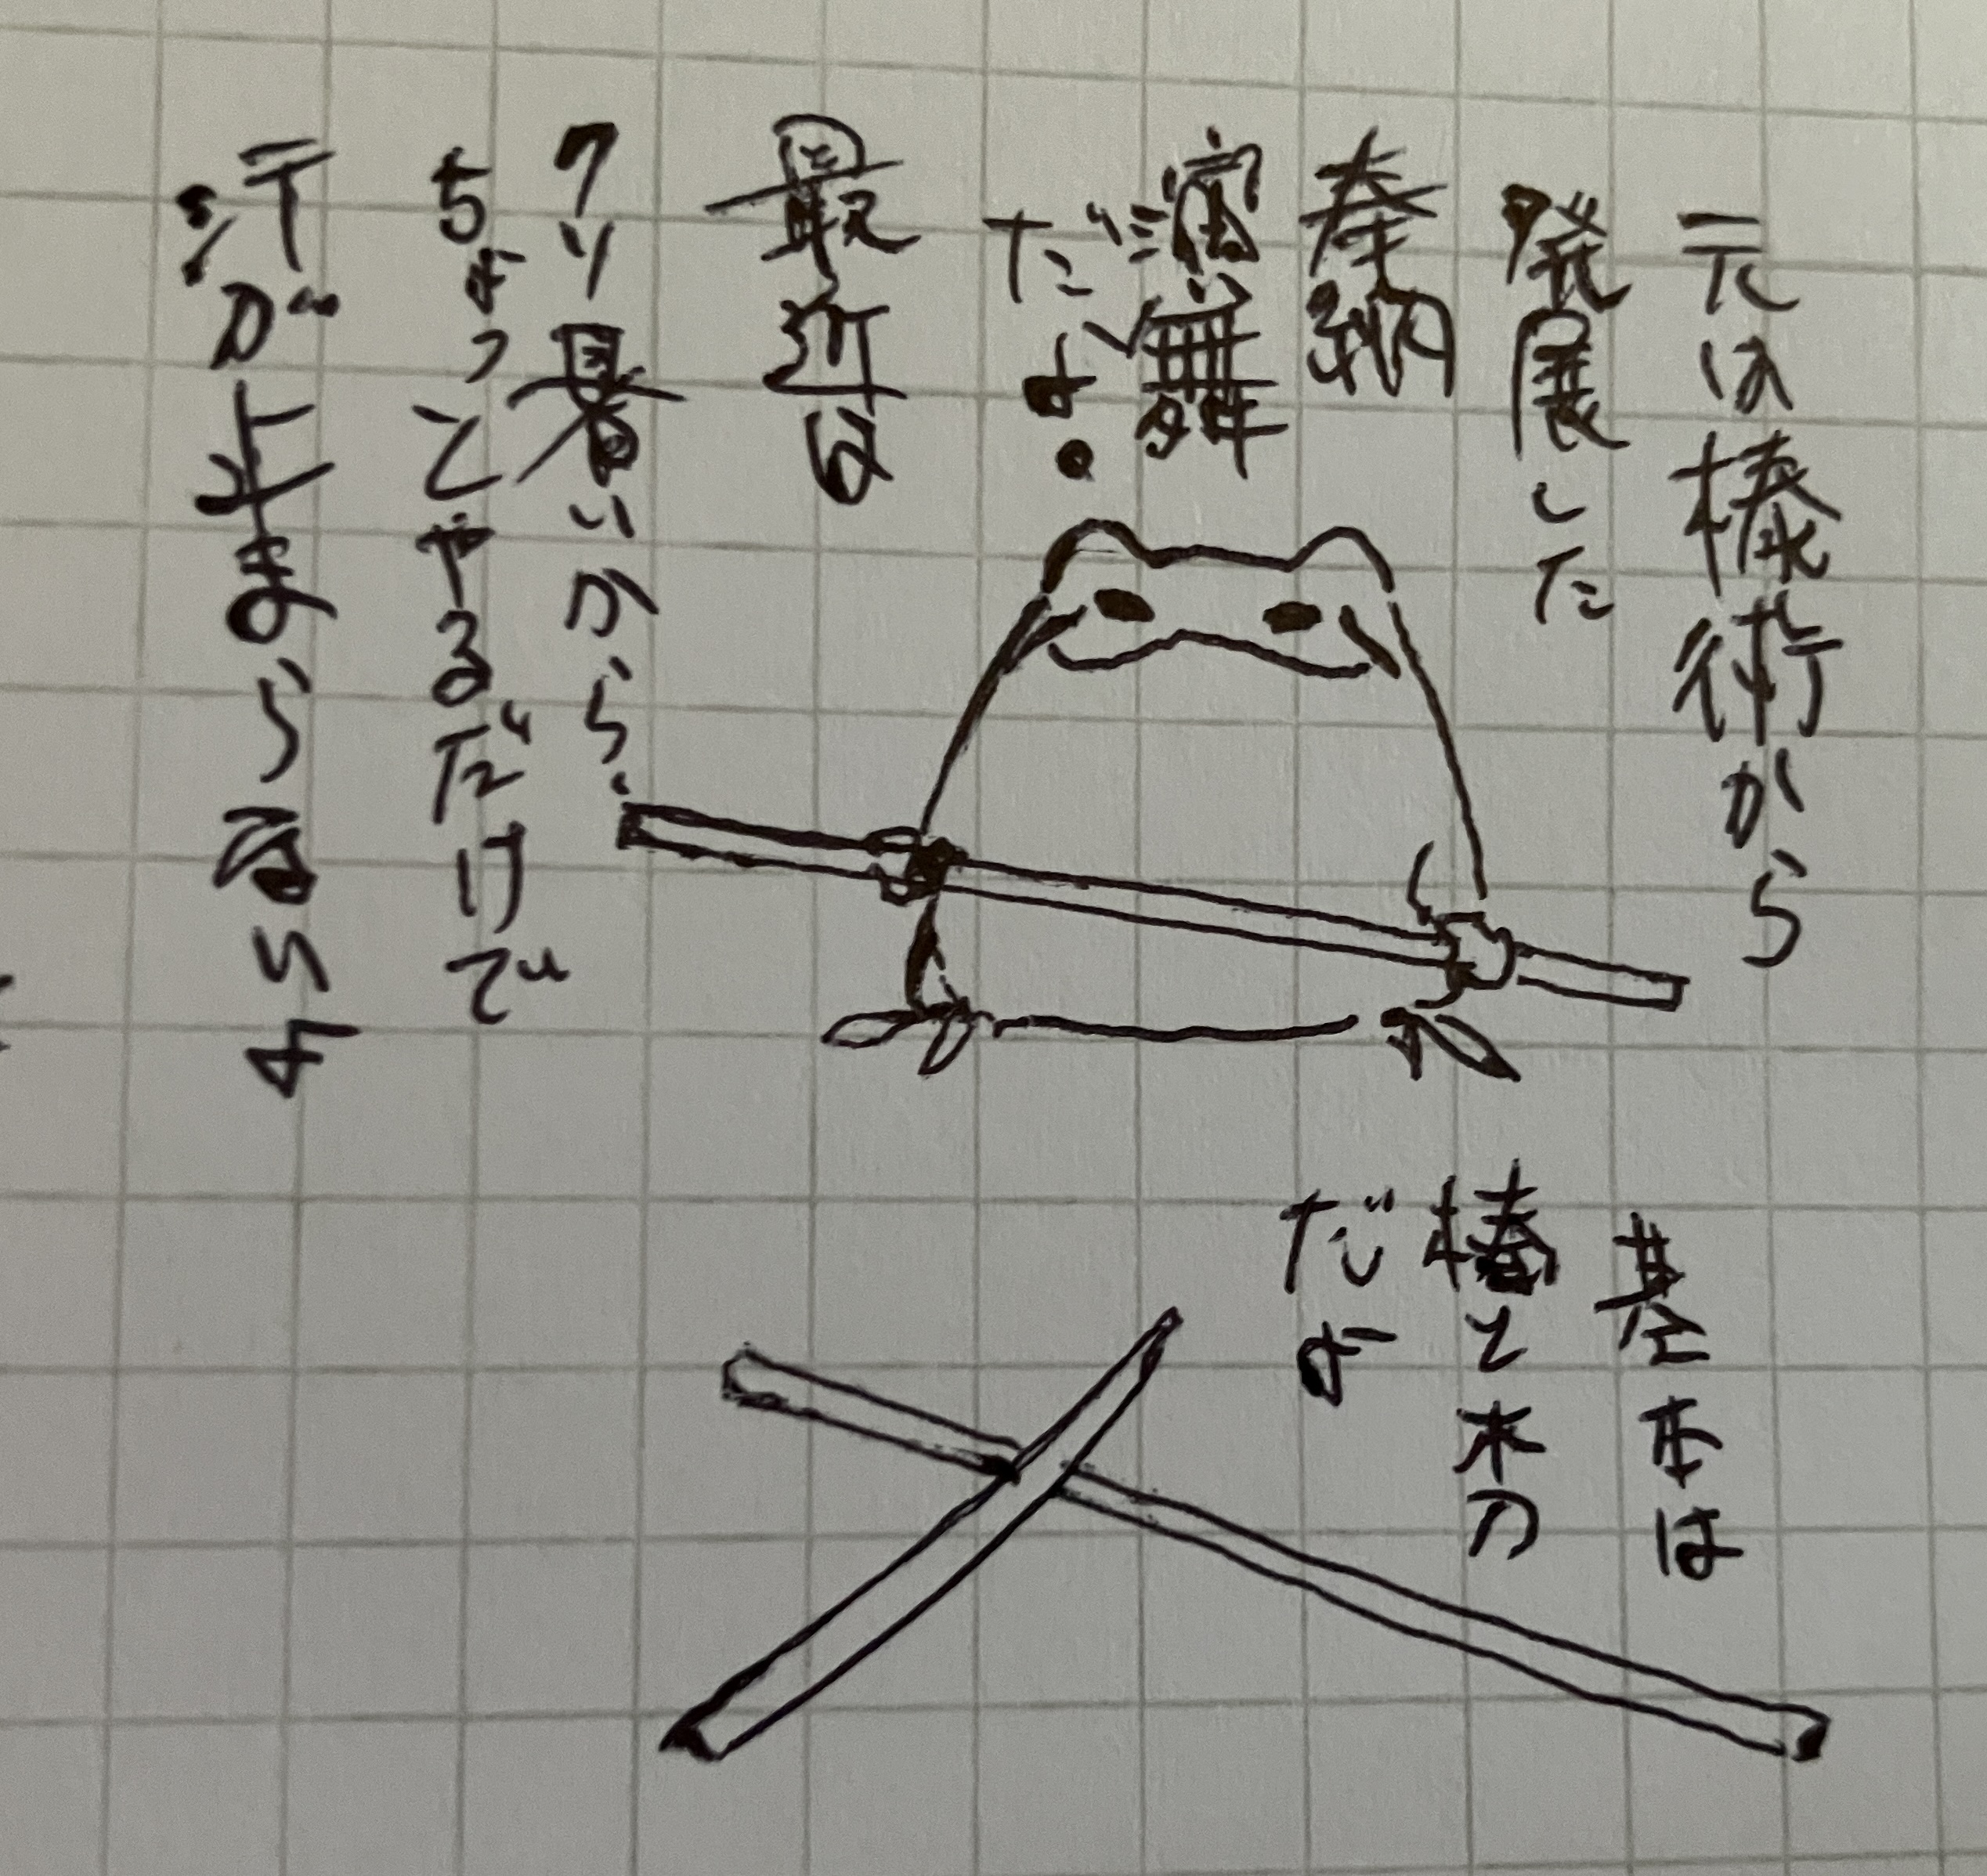 元は棒術から
発展した
奉納
演舞
だよ。
最近は
クソ暑いから、
ちょっとやるだけで
汗が止まらないよ
基本は
棒と木刀
だよ